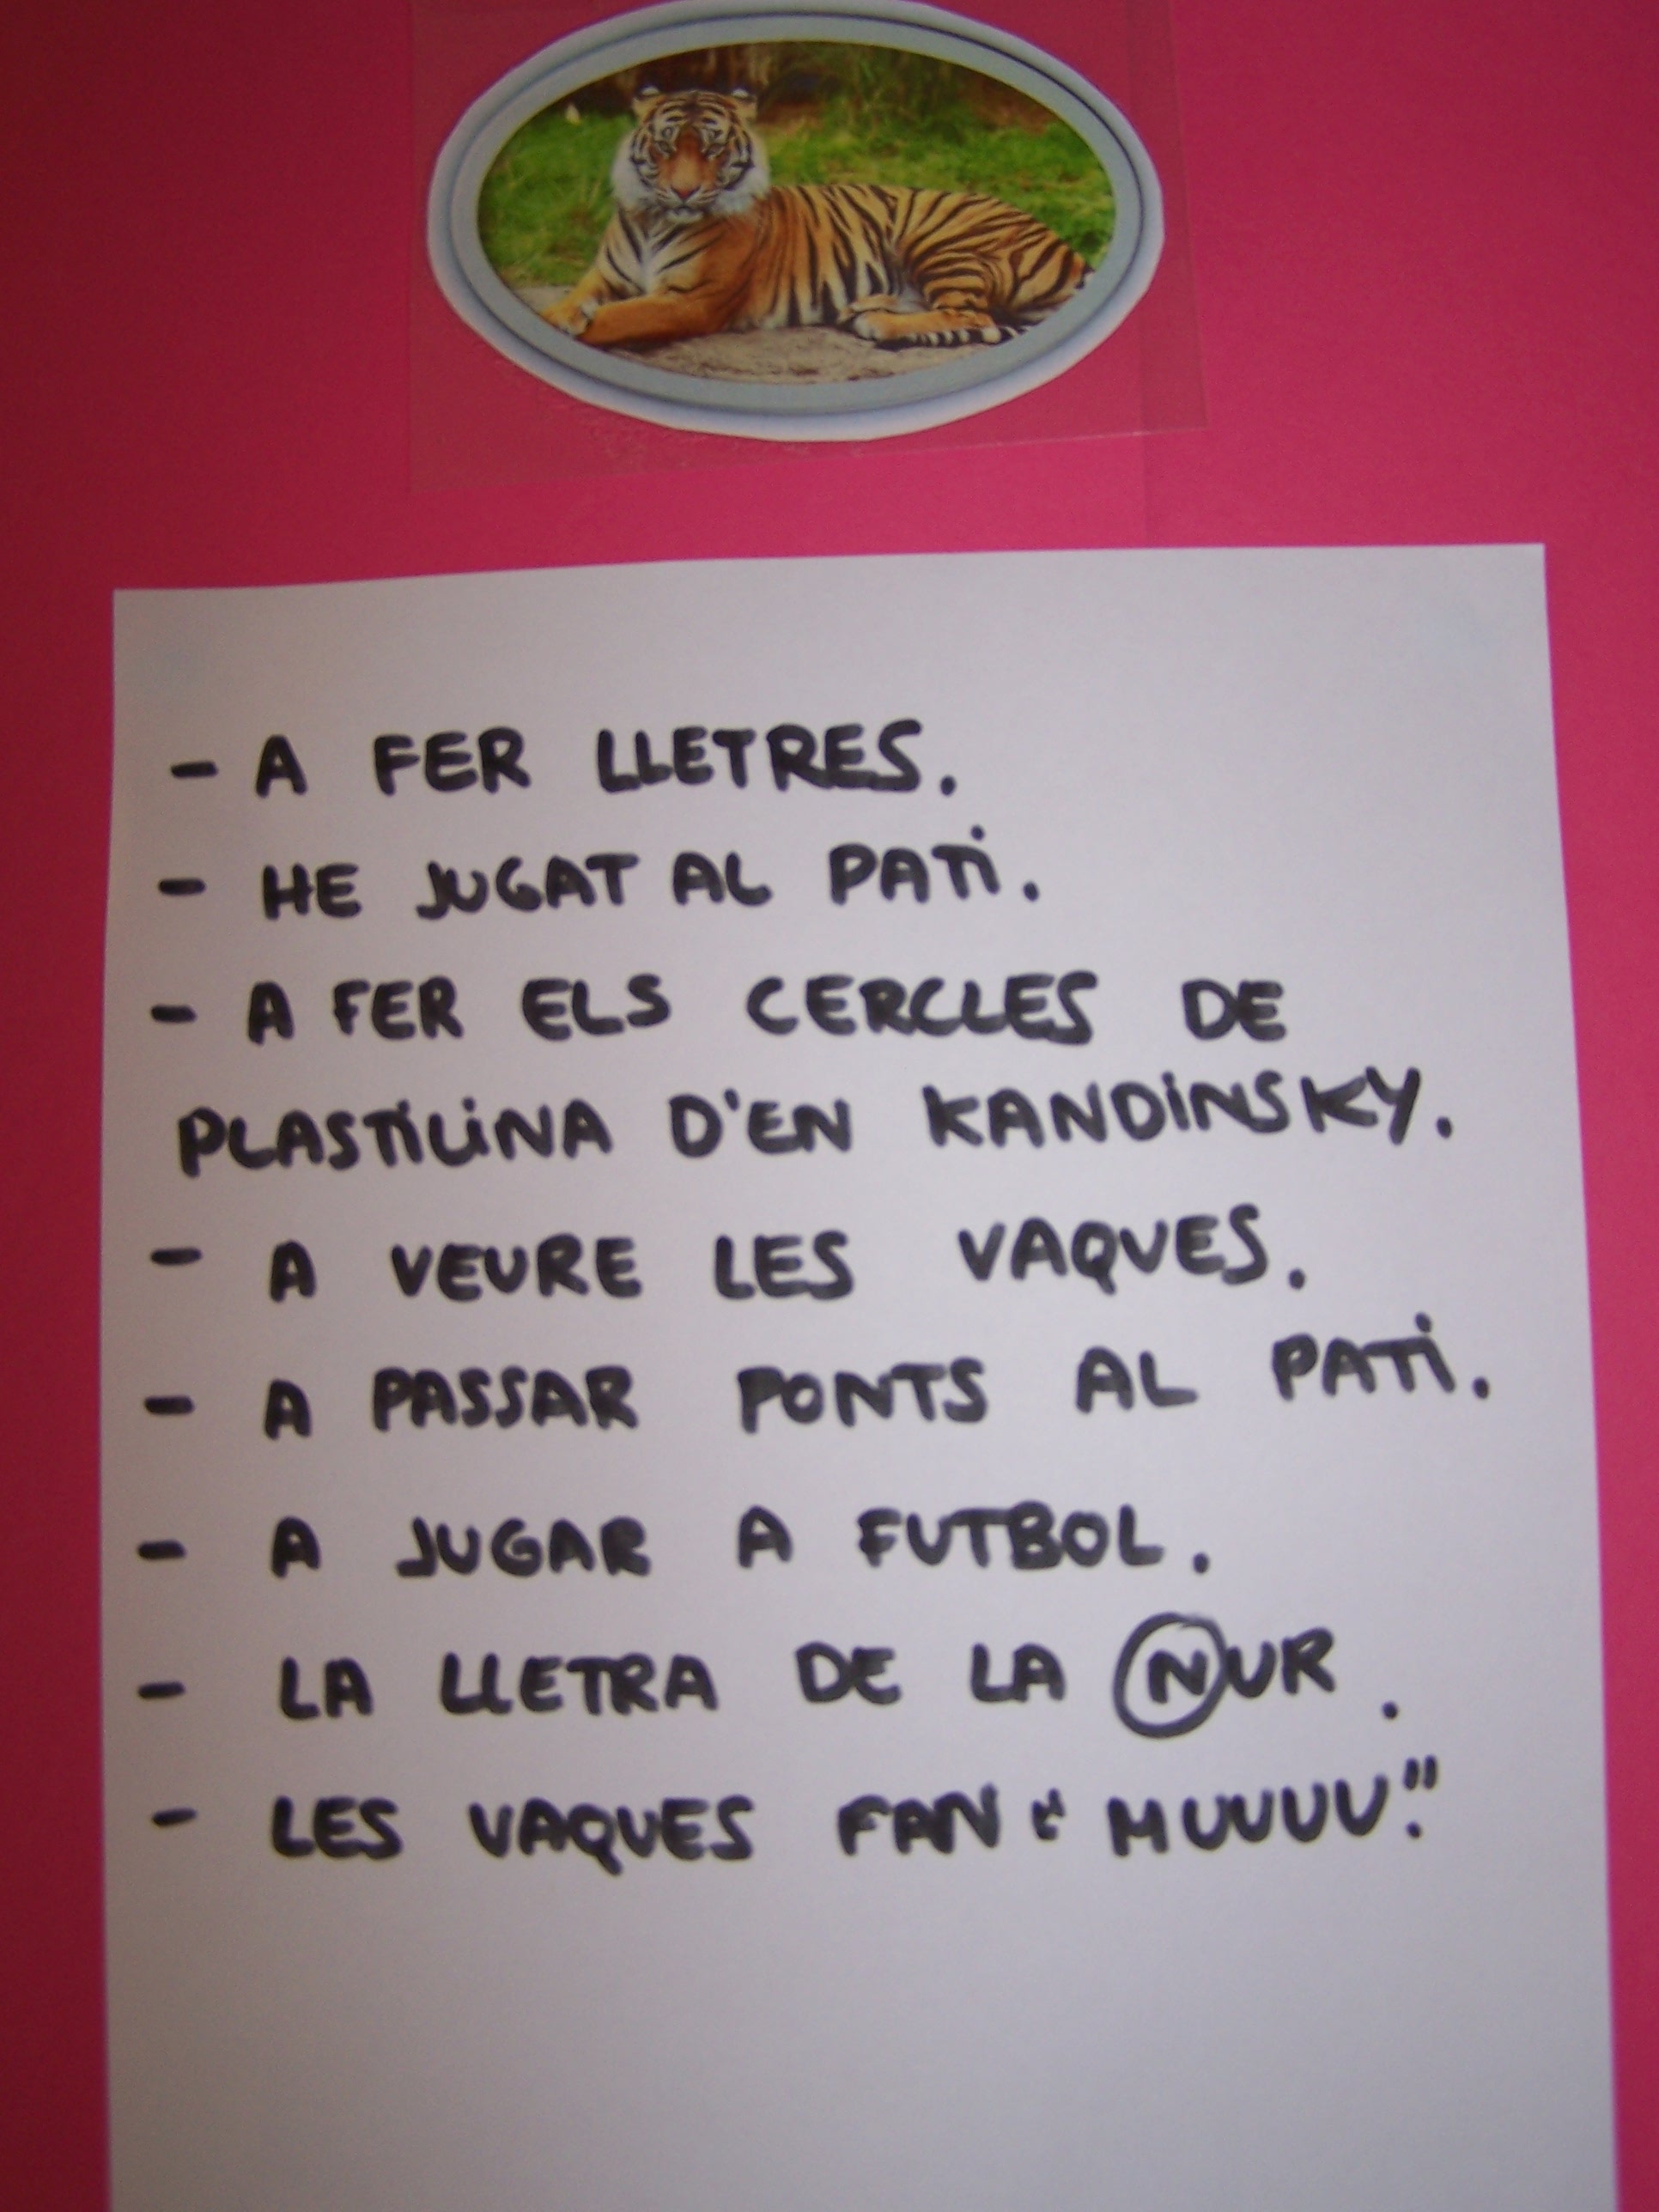 - A FER LLETRES.
- HE JUGAT AL PATi.
- A FER ELS CERCLES DE
PLASTiLiNA D'EN KANDiNSKY.
- A VEURE LES VAQUES.
- A PASSAR PONTS AL PATi.
- A JUGAR A FUTBOL.
- LA LLETRA DE LA NUR.
- LES VAQUES FAN "MUUUU".